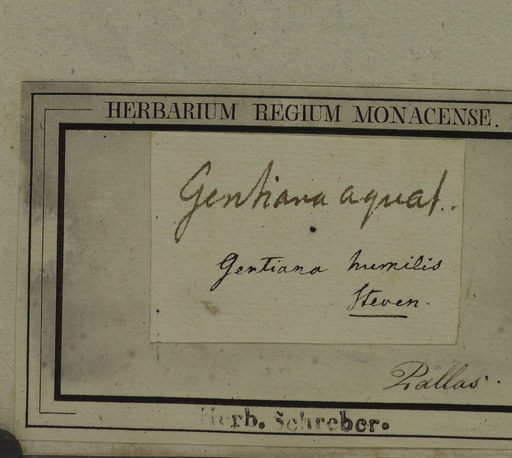 HERBARIUM REGIUM MONACENSE.
Gentiana aquat.
Gentiana humilis
Steven.
Pallas.
Herb. Schreber.